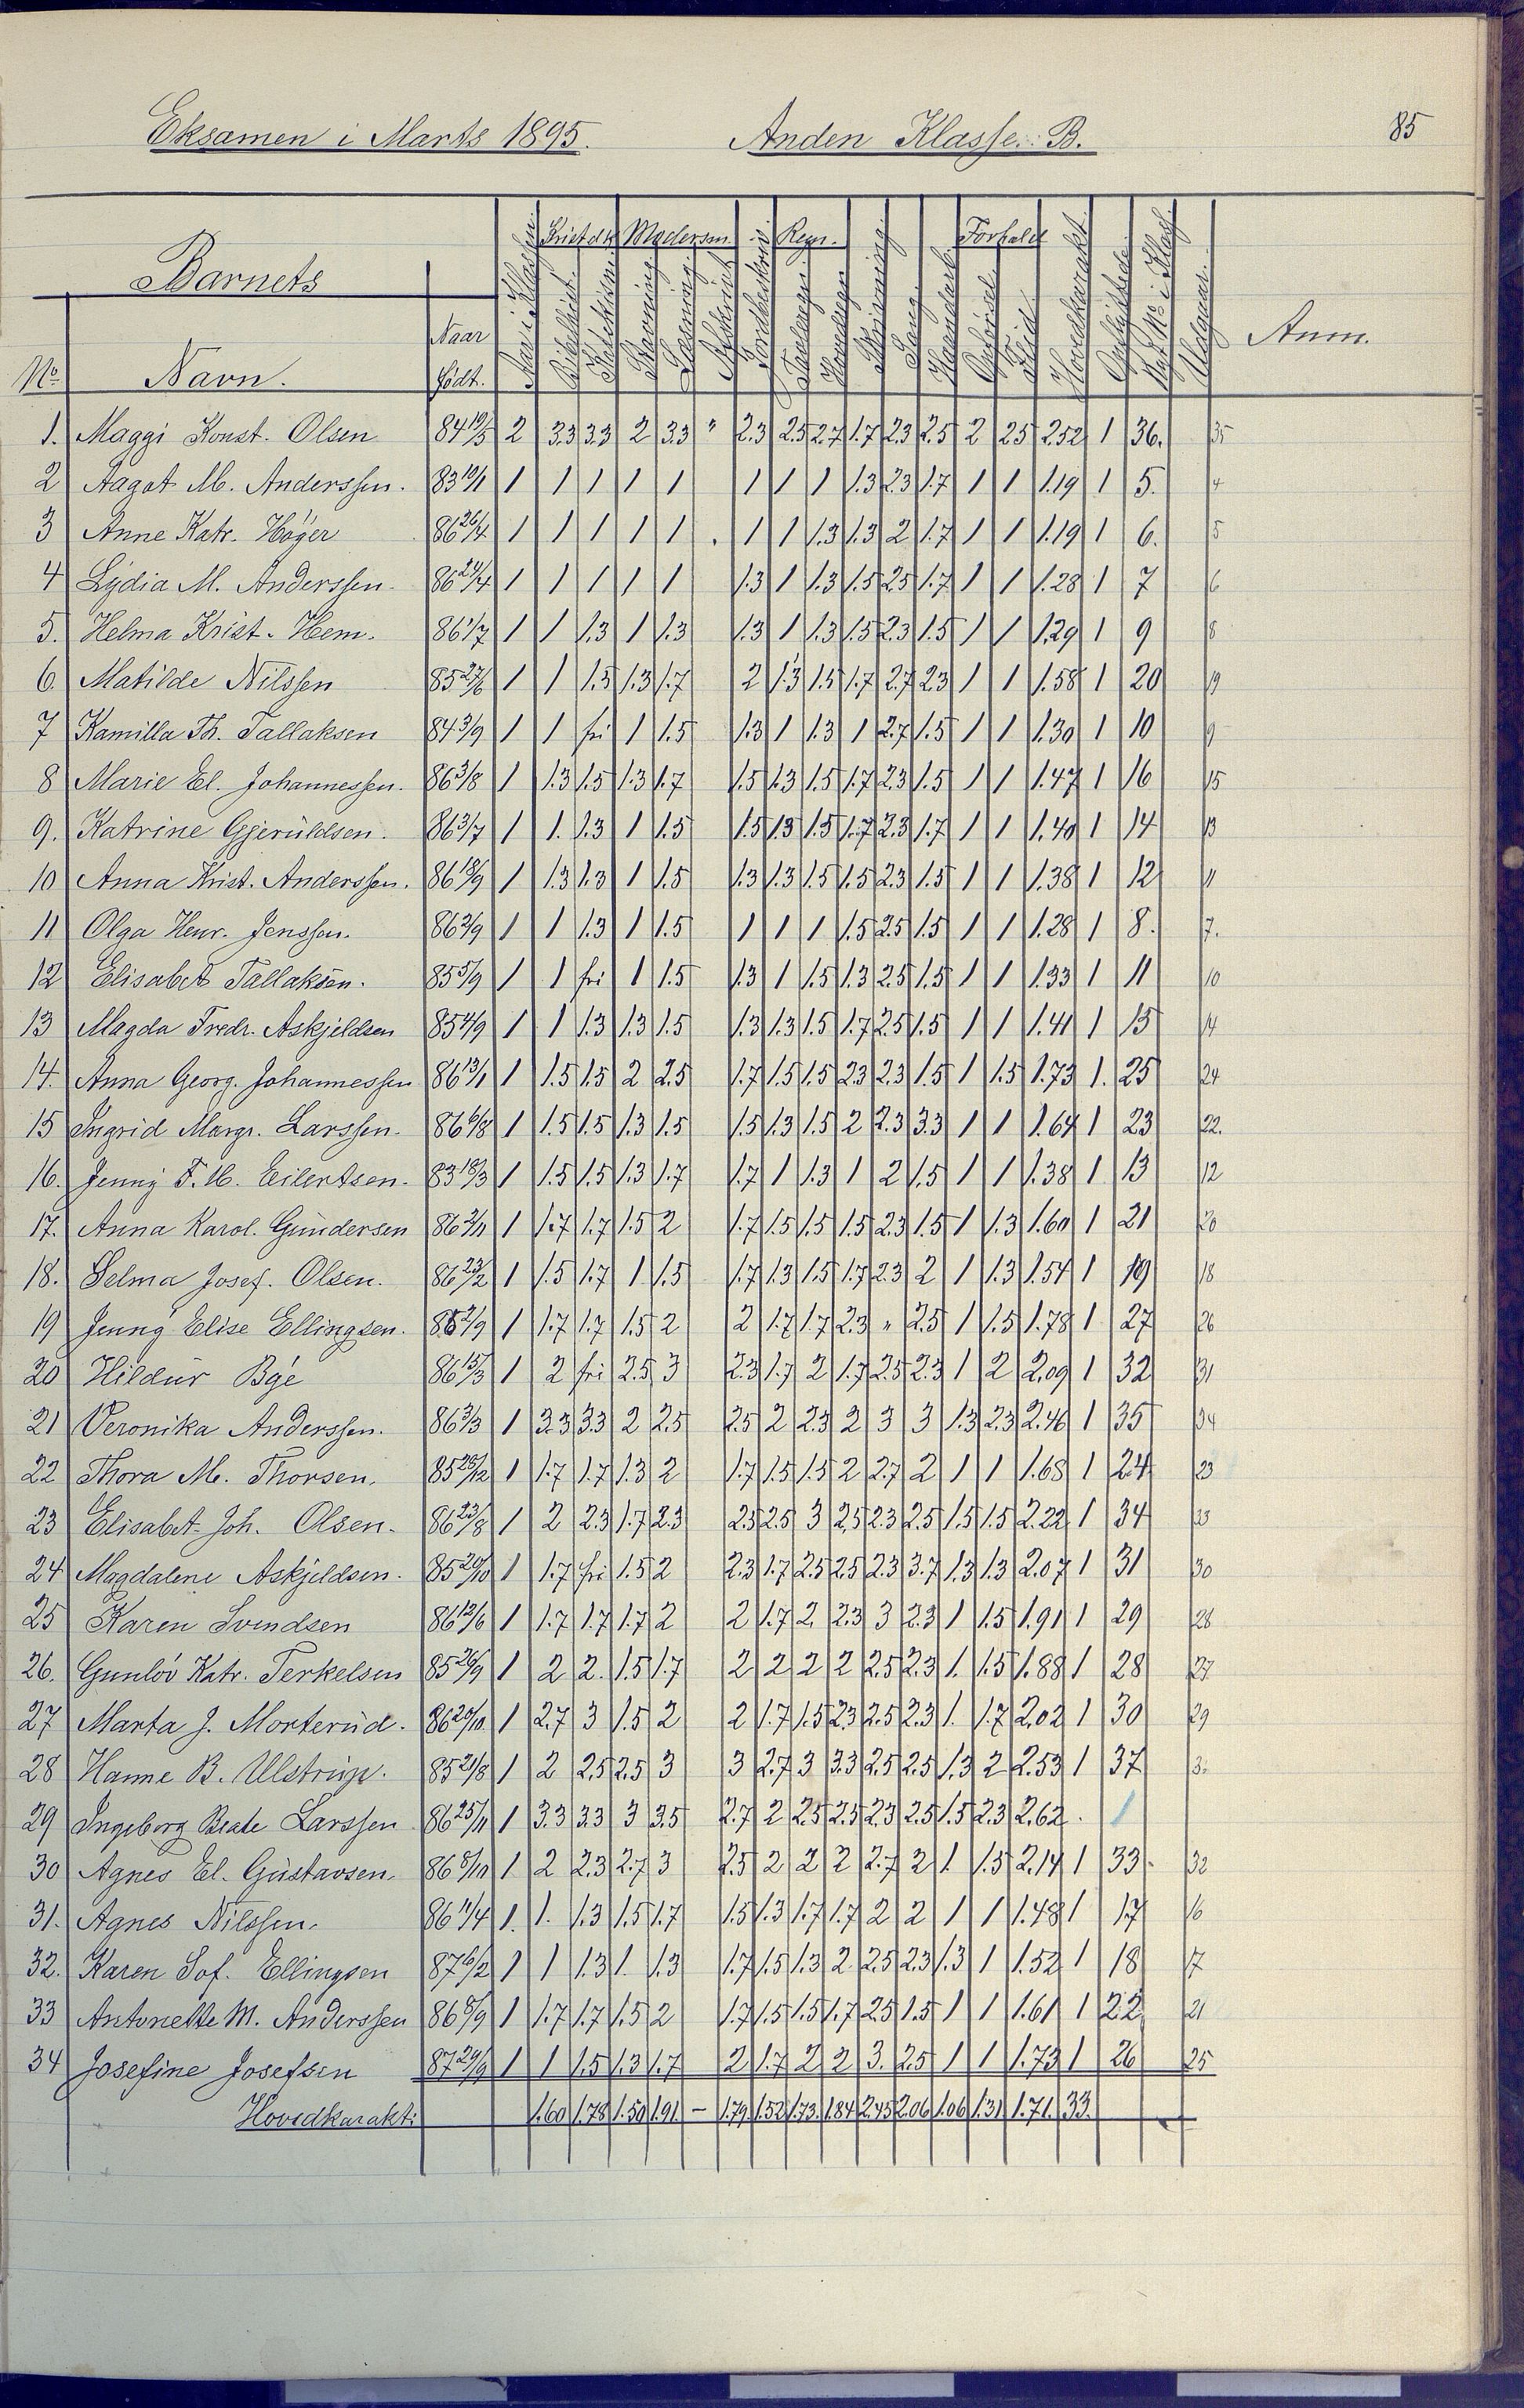 Eksamen i Marts 1895. Anden Klasse. B. 85
Kristdk Modersm. Regn. Forhold
Barnets
No Navn. Naar født. Aar i Klassen Bibelhist. Katekism. Stavning Læsning Afskrivn. Jordbeskriv. Tavleregn. Hovedregn. Skrivning Sang Haandarb. Opførsel Flid Hovedkarakt. Opflyttede Ny No i Klas. Anm.
1. Maggi Konst. Olsen 84 19/5 2 3.3 3.3 2 3.3 " 2.3 2.5 2.7 1.7 2.3 2.5 2 2.5 2.52 1 36. 35
2 Aagot M. Anderssen. 83 19/1 1 1 1 1 1 1 1 1 1.3 2.3 1.7 1 1 1.19 1 5. 4
3 Anne Katr. Höÿer 86 26/4 1 1 1 1 1 . 1 1 1.3 1.3 2 1.7 1 1 1.19 1 6. 5
4 Lydia M. Anderssen. 86 24/4 1 1 1 1 1 1.3 1 1.3 1.5 2.5 1.7 1 1 1.28 1 7 6
5. Helma Krist. Hem. 86 1/7 1 1 1.3 1 1.3 1.3 1 1.3 1.5 2.3 1.5 1 1 1.29 1 9 8
6. Matilde Nilssen 85 27/6 1 1 1.5 1.3 1.7 2 1.3 1.5 1.7 2.7 2.3 1 1 1.58 1 20 19
7 Kamilla Th. Tallaksen 84 3/9 1 1 fri 1 1.5 1.3 1 1.3 1 2.7 1.5 1 1 1.30 1 10 9
8 Marie El. Johannessen. 86 3/8 1 1.3 1.5 1.3 1.7 1.5 1.3 1.5 1.7 2.3 1.5 1 1 1.47 1 16 15
9. Katrine Gjerüldsen. 86 3/7 1 1. 1.3 1 1.5 1.5 1.3 1.5 1.7 2.3 1.7 1 1 1.40 1 14 13
10 Anna Krist. Anderssen. 86 18/9 1 1.3 1.3 1 1.5 1.3 1.3 1.5 1.5 2.3 1.5 1 1 1.38 1 12 11
11 Olga Henr. Jenssen. 86 2/9 1 1 1.3 1 1.5 1 1 1 1.5 2.5 1.5 1 1 1.28 1 8. 7.
12 Elisabet Tallaksen. 85 5/9 1 1 fri 1 1.5 1.3 1 1.5 1.3 2.5 1.5 1 1 1.33 1 11 10
13 Magda Fredr. Askjeldsen 85 4/9 1 1 1.3 1.3 1.5 1.3 1.3 1.5 1.7 2.5 1.5 1 1 1.41 1 15 14
14. Anna Georg. Johannessen 86 13/1 1 1.5 1.5 2 2.5 1.7 1.5 1.5 2.3 2.3 1.5 1 1.5 1.73 1. 25 24
15 Ingrid Margr. Larssen. 86 6/8 1 1.5 1.5 1.3 1.5 1.5 1.3 1.5 2 2.3 3.3 1 1 1.64 1 23 22.
16. Jenny F. M. Eilertsen. 83 18/3 1 1.5 1.5 1.3 1.7 1.7 1 1.3 1 2 1.5 1 1 1.38 1 13 12
17. Anna Karol. Gündersen 86 2/11 1 1.7 1.7 1.5 2 1.7 1.5 1.5 1.5 2.3 1.5 1 1.3 1.60 1 21 20
18. Selma Josef. Olsen. 86 23/2 1 1.5 1.7 1 1.5 1.7 1.3 1.5 1.7 2.3 2 1 1.3 1.54 1 19 18
19 Jenny Elise Ellingsen. 85 2/9 1 1.7 1.7 1.5 2 2 1.7 1.7 2.3 " 2.5 1 1.5 1.78 1 27 26
20 Hildür Bÿe 86 15/3 1 2 fri 2.5 3 2.3 1.7 2 1.7 2.5 2.3 1 2 2.09 1 32 31
21 Veronika Anderssen. 86 3/3 1 3.3 3.3 2 2.5 2.5 2 2.3 2 3 3 1.3 2.3 2.46 1 35 34
22 Thora M. Thorsen. 85 28/12 1 1.7 1.7 1.3 2 1.7 1.5 1.5 2 2.7 2 1 1 1.68 1 24 23
23 Elisabet Joh. Olsen. 86 23/8 1 2 2.3 1.7 2.3 2.3 2.5 3 2.5 2.3 2.5 1.5 1.5 2.22 1 34 33
24 Magdalene Askjeldsen. 85 29/10 1 1.7 fri 1.5 2 2.3 1.7 2.5 2.5 2.3 3.7 1.3 1.3 2.07 1 31 30
25 Karen Svendsen 86 12/6 1 1.7 1.7 1.7 2 2 1.7 2 2.3 3 2.3 1 1.5 1.91 1 29 28
26. Gunlöv Katr. Terkelsen 85 26/9 1 2 2. 1.5 1.7 2 2 2 2 2.5 2.3 1. 1.5 1.88 1 28 27
27 Marta J. Morterüd. 86 29/10 1 2.7 3 1.5 2 2 1.7 1.5 2.3 2.5 2.3 1. 1.7 2.02 1 30 29
28 Hanne B. Ulstrüp. 85 21/8 1 2 2.5 2.5 3 3 2.7 3 3.3 2.5 2.5 1.3 2 2.53 1 37
29 Ingeborg Beate Larssen 86 25/11 1 3.3 3.3 3 3.5 2.7 2 2.5 2.5 2.3 2.5 1.5 2.3 2.62. 1
30 Agnes El. Güstavsen. 86 8/10 1 2 2.3 2.7 3 2.5 2 2 2 2.7 2 1. 1.5 2.14 1 33. 32
31. Agnes Nilssen. 86 11/4 1. 1. 1.3 1.5 1.7 1.5 1.3 1.7 1.7 2 2 1 1 1.48 1 17 16
32. Karen Sof. Ellingsen 87 6/2 1 1 1.3 1. 1.3 1.7 1.5 1.3 2 2.5 2.3 1.3 1 1.52 1 18 17
33 Antonette M. Anderssen 86 8/9 1 1.7 1.7 1.5 2 1.7 1.5 1.5 1.7 2.5 1.5 1 1 1.61 1 22 21
34 Josefine Josefsen 87 29/9 1 1 1.5 1.3 1.7 2 1.7 2 2 3. 2.5 1 1 1.73 1 26 25
Hovedkarakt: 1.60 1.78 1.50 1.91 – 1.79 1.52 1.73 1.84 2.45 2.06 1.06 1.31 1.71. 33.